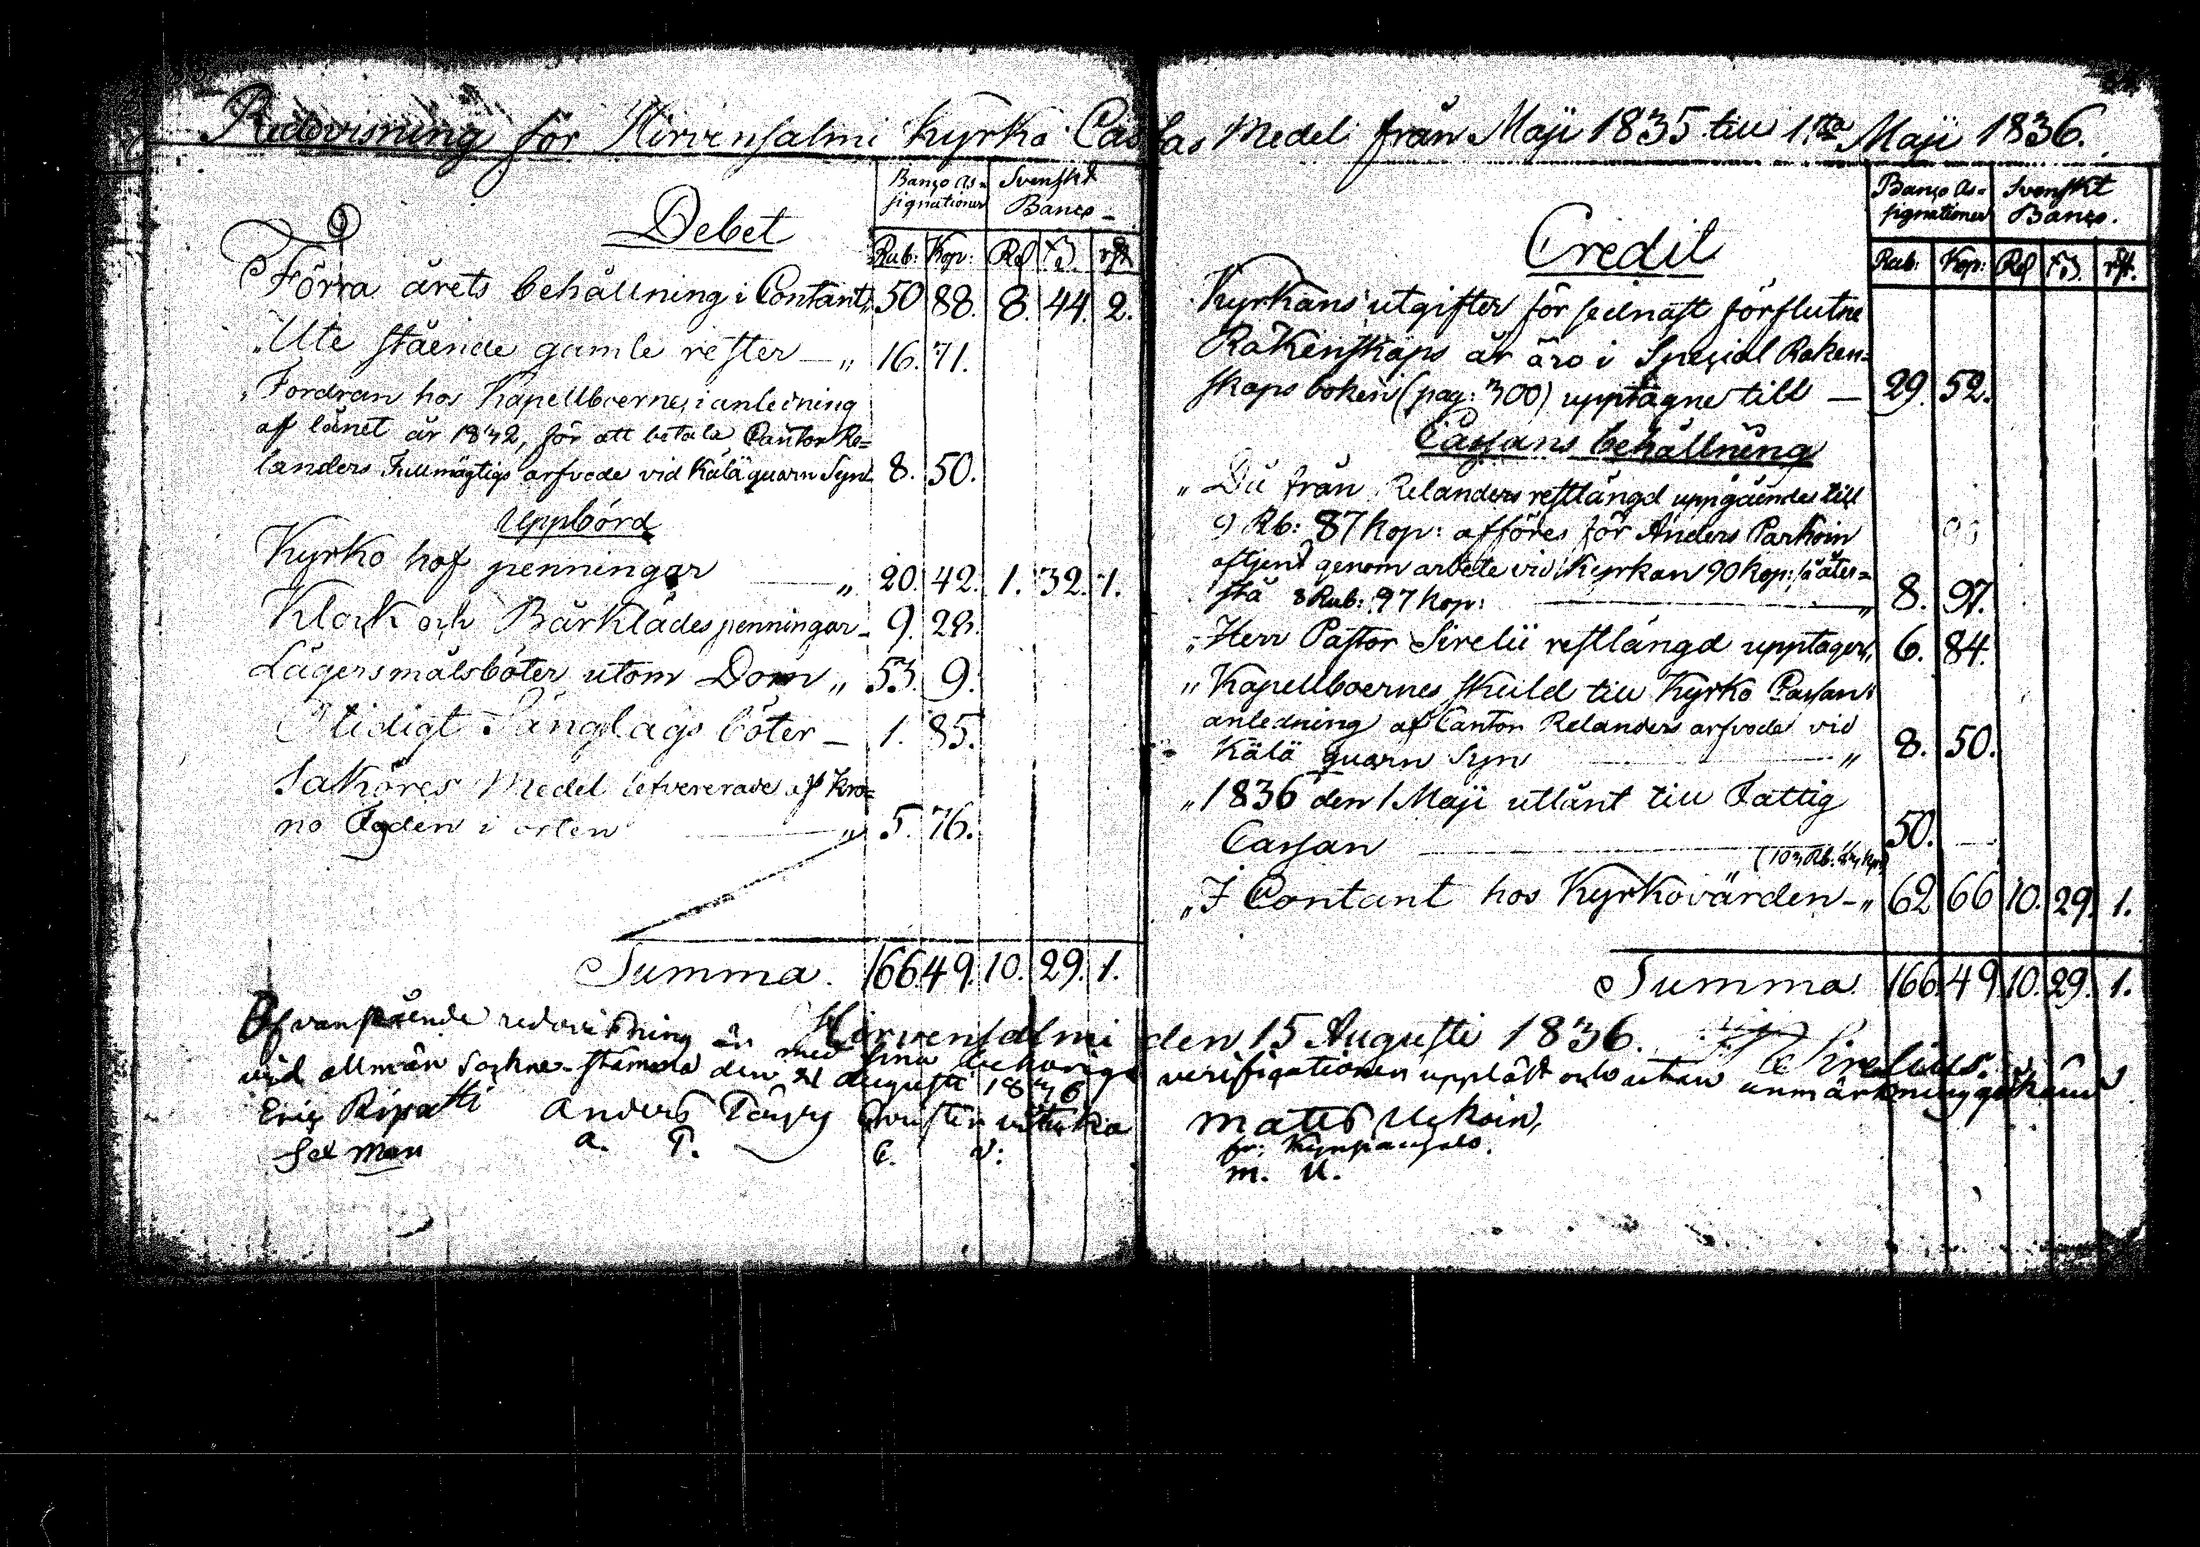 Redovisning för Hirvensalmi Kyrko Cassas Medel från Maji 1835 till 1.sta Maji 1836.
Debet
Banço As=
signationer
Svenskt
Banco
Rub: Kop: Rd ß. rst
Förra årets behållning i Contant „ 50 88. 8. 44. 2.
Ute stående gamle rester — „ 16. 71.
Fordran hos Kapellboerne, i anledning
af lånet år 1832, för att betala Cantor Re=
landers Fullmägtigs arfvode vid Kälä quarn Syn 8. 50.
Uppbörd
Kyrko hof penningar — „ 20. 42. 1. 32. 1.
Klock och Bårklädes penningar — 9. 28.
Lägersmålsböter utom Dom „ 53. 9.
Otidigt Sänglags böter — 1. 85.
Saköres Medel lefvererade af Kro=
no Fogden i orten — „ 5. 76.
Summa. 166. 49. 10. 29. 1.
Credit
Banço As=
signationer
Svenskt
Banço.
Rub: Kop: Rd ß. rst.
Kyrkans utgifter för sednast förflutne
Räkenskaps år äro i Speçial Räken=
skaps boken (pag: 300) upptagne till — 29. 52.
Cassans behållning
„ Du från Relanders restlängd uppgåendes till
9 Rb: 87 Kop: afföres för Anders Parkoin
aftjent genom arbete vid Kyrkan 90 Kop: så åter=
stå 8 Rub: 97 Kop: — „ 8. 97.
„ Herr Pastor Sirelii restlängd upptager „ 6. 84.
„ Kapellboernes skuld till Kyrko Cassan i
anledning af Cantor Relanders arfvode vid
Kälä quarn Syn — „ 8. 50.
„ 1836 den 1 Maji utlånt till Fattig
Cassan — 50. —
„ I Contant hos Kyrkovärden — „ 62 66 10. 29. 1.
Summa 166. 49 10. 29. 1.
Hirvensalmi den 15 Augusti 1836. Sirelius.
Ofvanstående redovisning är med sina behöriga verificationer uppläst och utan anmärkning godkänd
vid allmän Sockne-stämma den 21 Augusti 1836
Eric Ripatti Anders Täysy
Sex man a. T. C. v:
Matts Uckoin,
m. U.